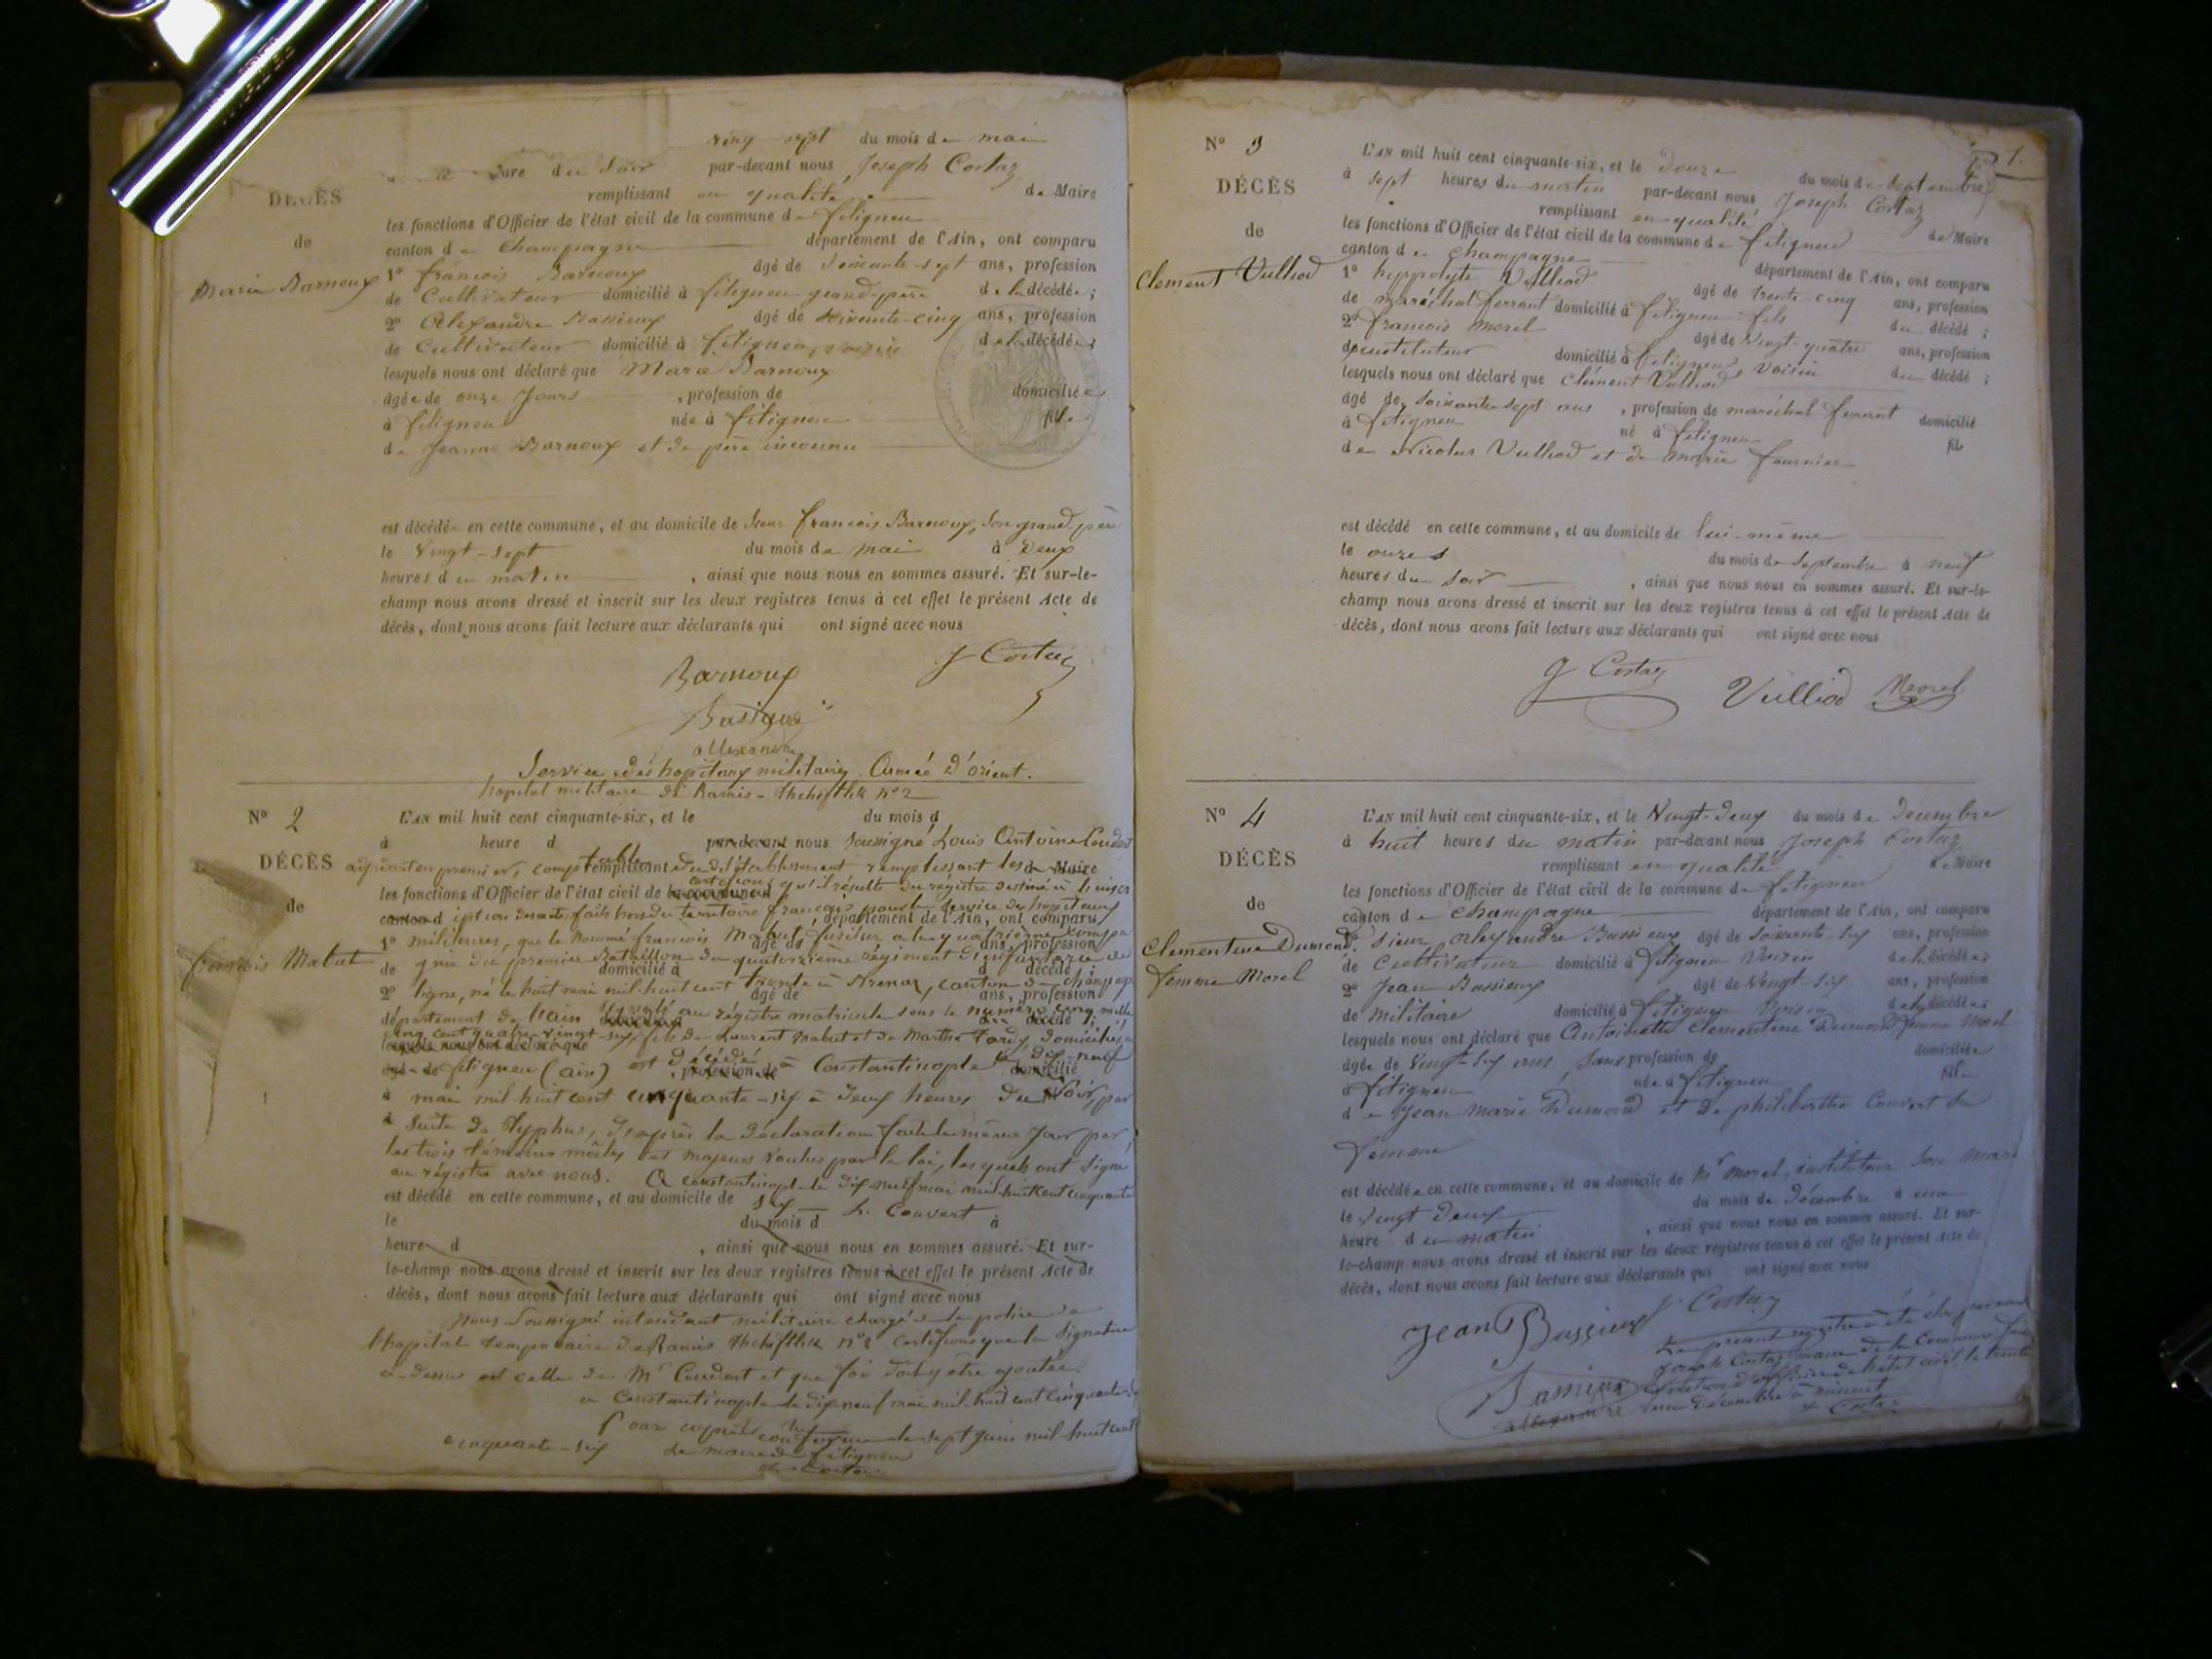 vingt sept du mois de mai
du soir par-devant nous Joseph Costaz
remplissant en qualité de Maire
DÉCÈS
de
Marie Barnoux
les fonctions d'Officier de l'état civil de la commune de fitignieu
canton de Champagne département de l'Ain, ont comparu
1° françois Barnoux âgé de soixante-sept ans, profession
de Cultivateur domicilié à fitignieu grand-père de la décédée ;
2° Alexandre Bassieux âgé de soixante-cinq ans, profession
de Cultivateur domicilié à fitignieu, voisin de la décédée
lesquels nous ont déclaré que Marie Barnoux
âgée de onze Jours , profession de domiciliée
à fitignieu née à fitignieu fille
de Jeanne Barnoux et de père inconnu
est décédée en cette commune, et au domicile de Sieur françois Barnoux, son grand-père
le Vingt-sept du mois de mai à Deux
heures du matin , ainsi que nous nous en sommes assuré. Et sur-le-
champ nous avons dressé et inscrit sur les deux registres tenus à cet effet le présent Acte de
décès, dont nous avons fait lecture aux déclarants qui ont signé avec nous
J Costaz
Barnoux
Bassieux
Service des hopitaux militaires. Armée d'orient.
hopital militaire de Ramis-Tchiftlik n° 2
N° 2
DÉCÈS
de
françois Mabut
L'AN mil huit cent cinquante-six, et le du mois d
à heure d par-devant nous Soussigné, Louis Antoine Coudert
adjudant en premier, comptable remplissant dudit établissement remplissant les de Maire
les fonctions d'Officier de l'état civil de la commune d certifions qu'il résulte du régistre destiné à l'inscr
canton d iption des actes faits hors du territoire français pour le service des hopitaux
département de l'Ain, ont comparu
1° militaires, que le nommé françois Mabut fusilier à la quatrième compa
âgé de ans, profession
de gnie du premier Bataillon du quatorzième régiment d'infanterie de
domicilié à d décédé ;
2° ligne, né le huit mai mil huit cent trente à Brenaz, canton de Champagne
âgé de ans, profession
département de l'ain au régistre matricule sous le numéro cinq mille
cinq cent quatre-vingt-six, fils de Laurent Mabut et de Marthe Tardy, domiciliés à
lesquels nous ont déclaré que
âgé de fitignieu (ain) est décédé à Constantinople le dix-neuf
, profession de domicilié
à mai mil huit cent cinquante-six à Deux heures du soir, par
d suite de typhus, d'après la déclaration faite le même jour par
les trois témoins mâles et majeurs voulus par la loi, lesquels ont signé
au régistre avec nous. A Constantinople le dix-neuf mai mil huit cent cinquante
est décédé en cette commune, et au domicile de six
le du mois d à
heure d , ainsi que nous nous en sommes assuré. Et sur-
le-champ nous avons dressé et inscrit sur les deux registres tenus à cet effet le présent Acte de
décès, dont nous avons fait lecture aux déclarants qui ont signé avec nous
Nous Soussigné intendant militaire chargé de la police de
l'hopital temporaire de Ramis Tchiftlik n° 2 certifions que la signature
ci-dessus est celle de Mr Coudert et que foi doit y être ajoutée.
à Constantinople le dix-neuf mai mil huit cent cinquante-six
Pour copie conforme le sept juin mil huit cent
cinquante-six Le maire de fitignieu
J Costaz
1.
N° 3
DÉCÈS
de
Clement Vulliod
L'AN mil huit cent cinquante-six, et le Douze du mois de Septembre
à sept heures du matin par-devant nous Joseph Costaz
remplissant en qualité de Maire
les fonctions d'Officier de l'état civil de la commune de fitignieu
canton de Champagne département de l'Ain, ont comparu
1° hyppolyte Vulliod âgé de trente-cinq ans, profession
de maréchal ferrant domicilié à fitignieu fils du décédé ;
2° françois Morel âgé de vingt-quatre ans, profession
d'instituteur domicilié à fitignieu, voisin du décédé ;
lesquels nous ont déclaré que Clément Vulliod
âgé de soixante-sept ans , profession de maréchal ferrant domicilié
à fitignieu né à fitignieu fils
de Nicolas Vulliod et de Marie fournier
est décédé en cette commune, et au domicile de lui-même
le onze du mois de Septembre à neuf
heures du soir , ainsi que nous nous en sommes assuré. Et sur-le-
champ nous avons dressé et inscrit sur les deux registres tenus à cet effet le présent Acte de
décès, dont nous avons fait lecture aux déclarants qui ont signé avec nous
J Costaz Vulliod Morel
N° 4
DÉCÈS
de
Clementine Dumond
femme Morel
L'AN mil huit cent cinquante-six, et le Vingt-Deux du mois de Décembre
à huit heures du matin par-devant nous Joseph Costaz
remplissant en qualité de Maire
les fonctions d'Officier de l'état civil de la commune de fitignieu
canton de Champagne département de l'Ain, ont comparu
1° Sieur Alexandre Bassieux âgé de soixante-six ans, profession
de Cultivateur domicilié à fitignieu Voisin de la décédée ;
2° Jean Bassieux âgé de vingt-six ans, profession
de Militaire domicilié à fitignieu Voisin de la décédée ;
lesquels nous ont déclaré que Antoinette Clementine Dumond femme Morel
âgée de vingt-six ans, sans profession de domiciliée
à fitignieu née à fitignieu fille
de Jean Marie Dumond et de philiberthe Convert sa
femme
est décédée en cette commune, et au domicile de Mr Morel, instituteur son mari
le vingt deux du mois de Décembre à une
heure du matin , ainsi que nous nous en sommes assuré. Et sur-
le-champ nous avons dressé et inscrit sur les deux registres tenus à cet effet le présent Acte de
décès, dont nous avons fait lecture aux déclarants qui ont signé avec nous
J. Costaz
Jean Bassieux
Bassieux
Le présent registre a été clos par nous
Joseph Costaz maire de la Commune
fonctions d'officier de l'état civil, le trente
un Décembre à minuit
J Costaz